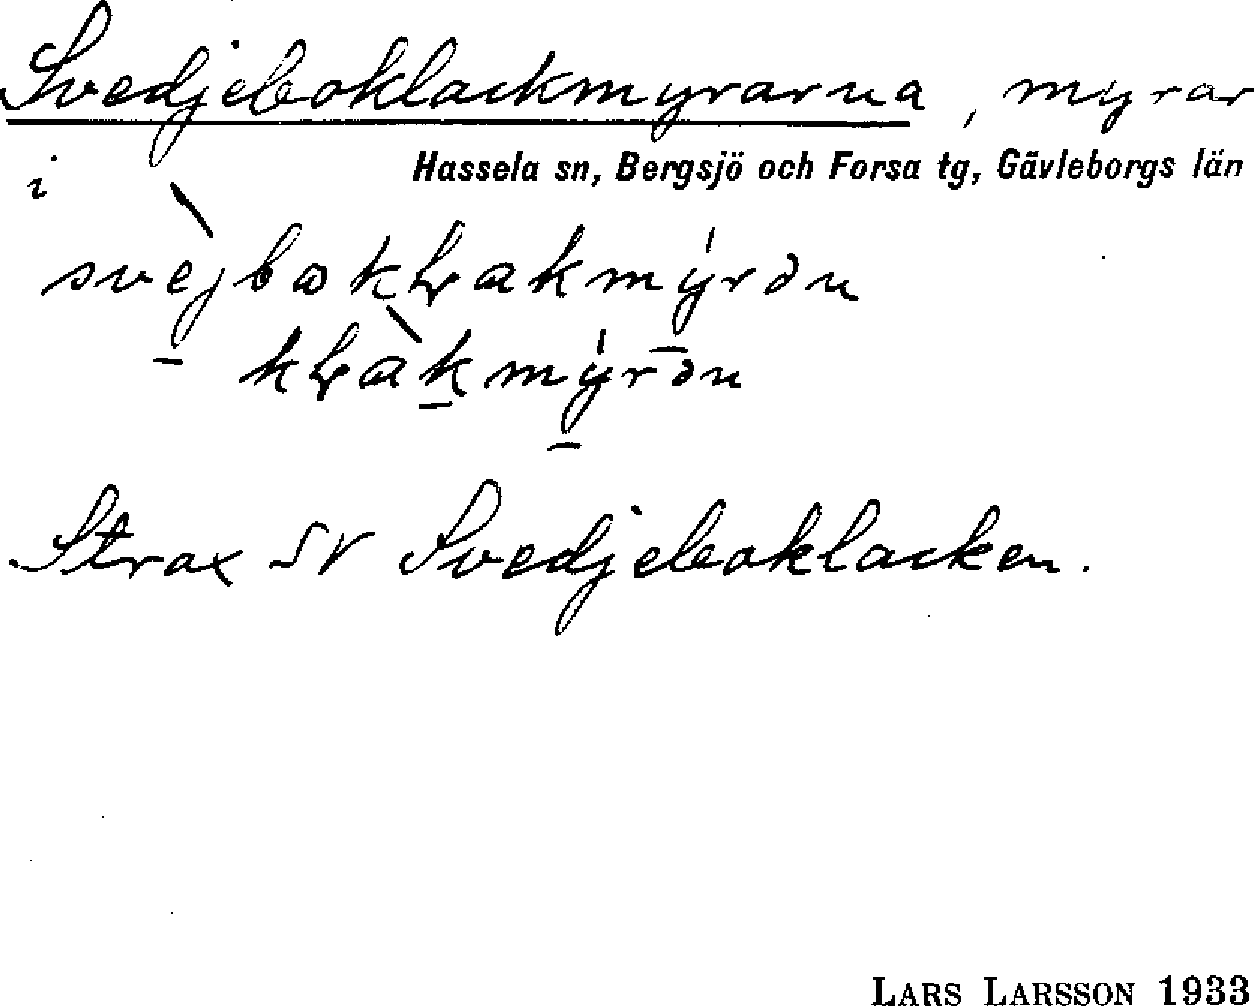 Svedjeboklackmyrarna, myrar
i Hassela sn, Bergsjö och Forsa tg, Gävleborgs län
Strax SV Svedjeboklacken.
LARS LARSSON 1933